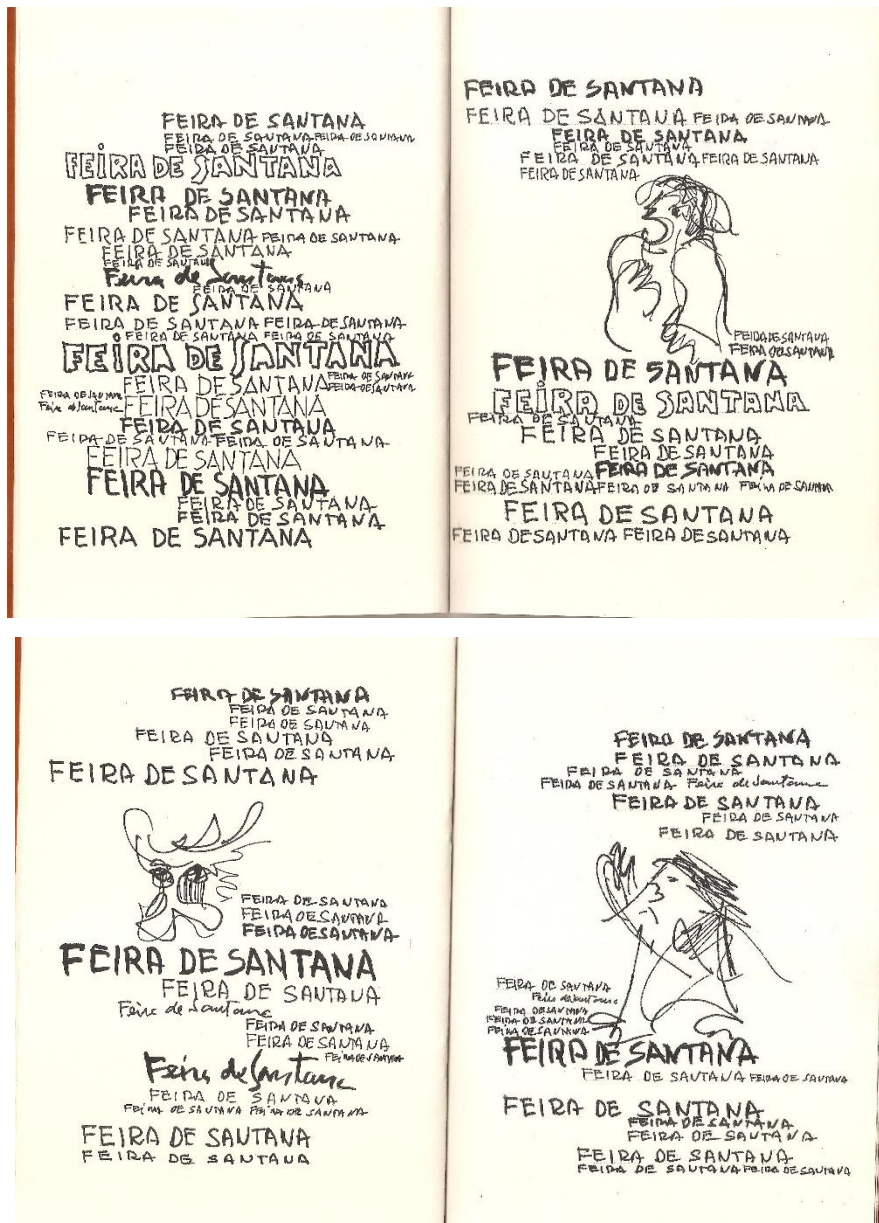 FEIRA DE SANTANA
FEIRA DE SANTANA FEIRA DE SANTANA
FEIRA DE SANTANA
FEIRA DE SANTANA
FEIRA DE SANTANA
FEIRA DE SANTANA
FEIRA DE SANTANA FEIRA DE SANTANA
FEIRA DE SANTANA
FEIRA DE SANTANA
Feira de Santana
FEIRA DE SANTANA
FEIRA DE SANTANA
FEIRA DE SANTANA FEIRA DE SANTANA
FEIRA DE SANTANA FEIRA DE SANTANA
FEIRA DE SANTANA
FEIRA DE SANTANA FEIRA DE SANTANA
FEIRA DE SANTANA
FEIRA DE SANTANA
Feira de Santana FEIRA DE SANTANA
FEIRA DE SANTANA
FEIRA DE SANTANA FEIRA DE SANTANA
FEIRA DE SANTANA
FEIRA DE SANTANA
FEIRA DE SANTANA
FEIRA DE SANTANA
FEIRA DE SANTANA
FEIRA DE SANTANA
FEIRA DE SANTANA FEIRA DE SANTANA
FEIRA DE SANTANA
FEIRA DE SANTANA
FEIRA DE SANTANA FEIRA DE SANTANA
FEIRA DE SANTANA
FEIRA DE SANTANA
FEIRA DE SANTANA
FEIRA DE SANTANA
FEIRA DE SANTANA
FEIRA DE SANTANA
FEIRA DE SANTANA
FEIRA DE SANTANA
FEIRA DE SANTANA FEIRA DE SANTANA
FEIRA DE SANTANA FEIRA DE SANTANA FEIRA DE SANTANA
FEIRA DE SANTANA
FEIRA DE SANTANA FEIRA DE SANTANA
FEIRA DE SANTANA
FEIRA DE SANTANA
FEIRA DE SANTANA
FEIRA DE SANTANA
FEIRA DE SANTANA
FEIRA DE SANTANA
FEIRA DE SANTANA
FEIRA DE SANTANA
FEIRA DE SANTANA
FEIRA DE SANTANA
FEIRA DE SANTANA
Feira de Santana
FEIRA DE SANTANA
FEIRA DE SANTANA
FEIRA DE SANTANA
Feira de Santana
FEIRA DE SANTANA
FEIRA DE SANTANA FEIRA DE SANTANA
FEIRA DE SANTANA
FEIRA DE SANTANA
FEIRA DE SANTANA
FEIRA DE SANTANA
FEIRA DE SANTANA
FEIRA DE SANTANA Feira de Santana
FEIRA DE SANTANA
FEIRA DE SANTANA
FEIRA DE SANTANA
FEIRA DE SANTANA
Feira de Santana
FEIRA DE SANTANA
FEIRA DE SANTANA
FEIRA DE SANTANA
FEIRA DE SANTANA
FEIRA DE SANTANA FEIRA DE SANTANA
FEIRA DE SANTANA
FEIRA DE SANTANA
FEIRA DE SANTANA
FEIRA DE SANTANA
FEIRA DE SANTANA FEIRA DE SANTANA